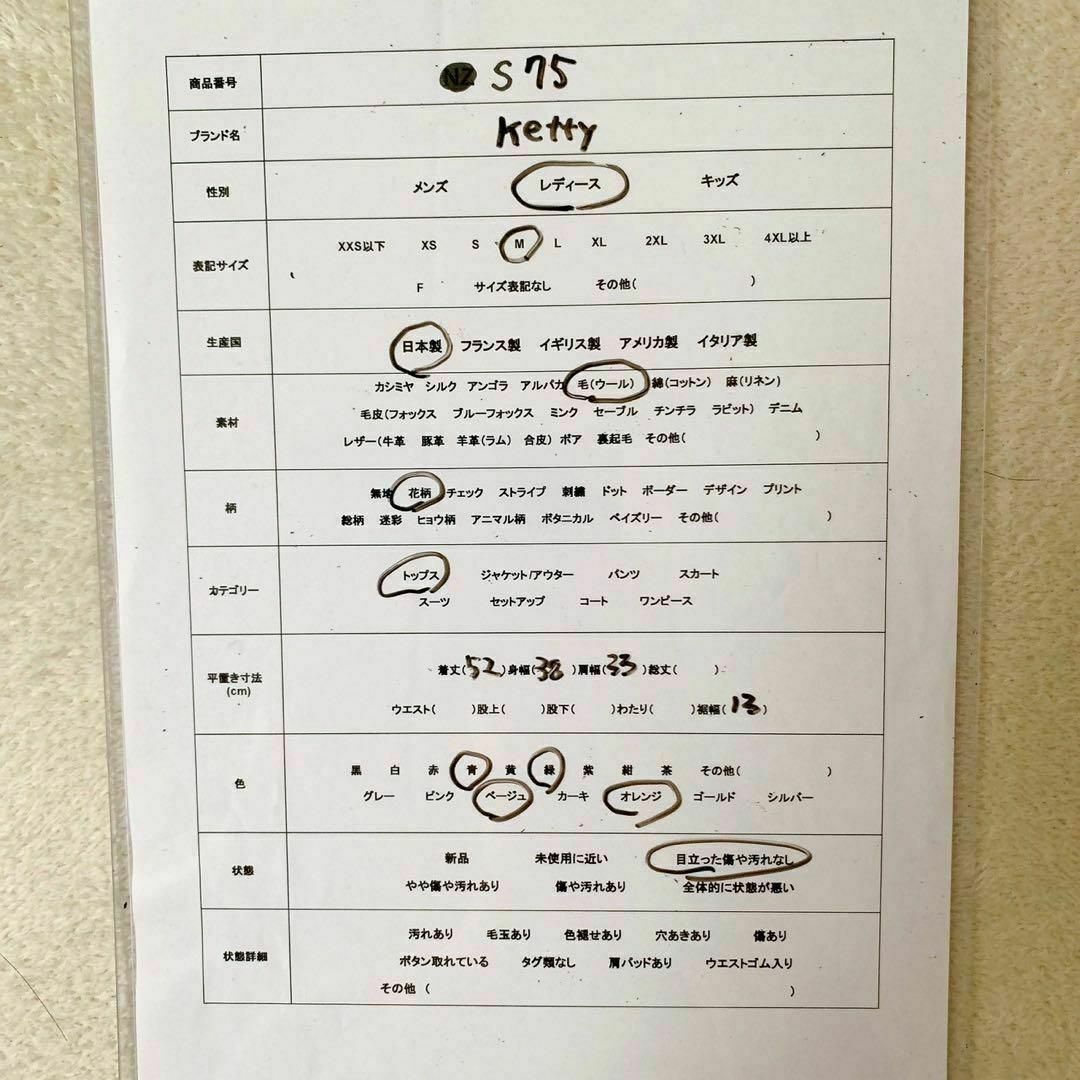 商品番号 NZ S 75
ブランド名 Ketty
性別 メンズ レディース キッズ
表記サイズ
XXS以下 XS S M L XL 2XL 3XL 4XL以上
F サイズ表記なし その他( )
生産国 日本製 フランス製 イギリス製 アメリカ製 イタリア製
素材
カシミヤ シルク アンゴラ アルパカ 毛(ウール) 綿(コットン) 麻(リネン)
毛皮(フォックス ブルーフォックス ミンク セーブル チンチラ ラビット) デニム
レザー(牛革 豚革 羊革(ラム) 合皮) ボア 裏起毛 その他( )
柄
無地 花柄 チェック ストライプ 刺繍 ドット ボーダー デザイン プリント
総柄 迷彩 ヒョウ柄 アニマル柄 ボタニカル ペイズリー その他( )
カテゴリー
トップス ジャケット/アウター パンツ スカート
スーツ セットアップ コート ワンピース
平置き寸法
(cm)
着丈(52)身幅(38)肩幅(33)総丈( )
ウエスト( )股上( )股下( )わたり( )裾幅(13)
色
黒 白 赤 青 黄 緑 紫 紺 茶 その他( )
グレー ピンク ベージュ カーキ オレンジ ゴールド シルバー
状態
新品 未使用に近い 目立った傷や汚れなし
やや傷や汚れあり 傷や汚れあり 全体的に状態が悪い
状態詳細
汚れあり 毛玉あり 色褪せあり 穴あきあり 傷あり
ボタン取れている タグ類なし 肩パッドあり ウエストゴム入り
その他 ( )